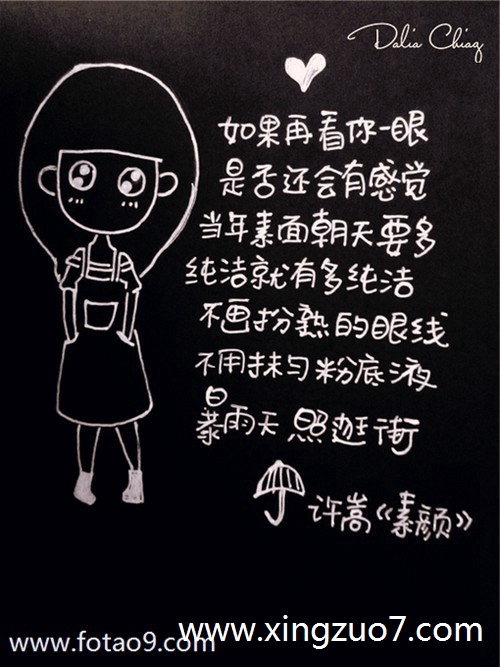 Dalia Chiaq
如果再看你一眼
是否还会有感觉
当年素面朝天要多
纯洁就有多纯洁
不画扮熟的眼线
不用抹匀粉底液
暴雨天 照逛街
许嵩《素颜》
www.xingzuo7.com
www.fotao9.com